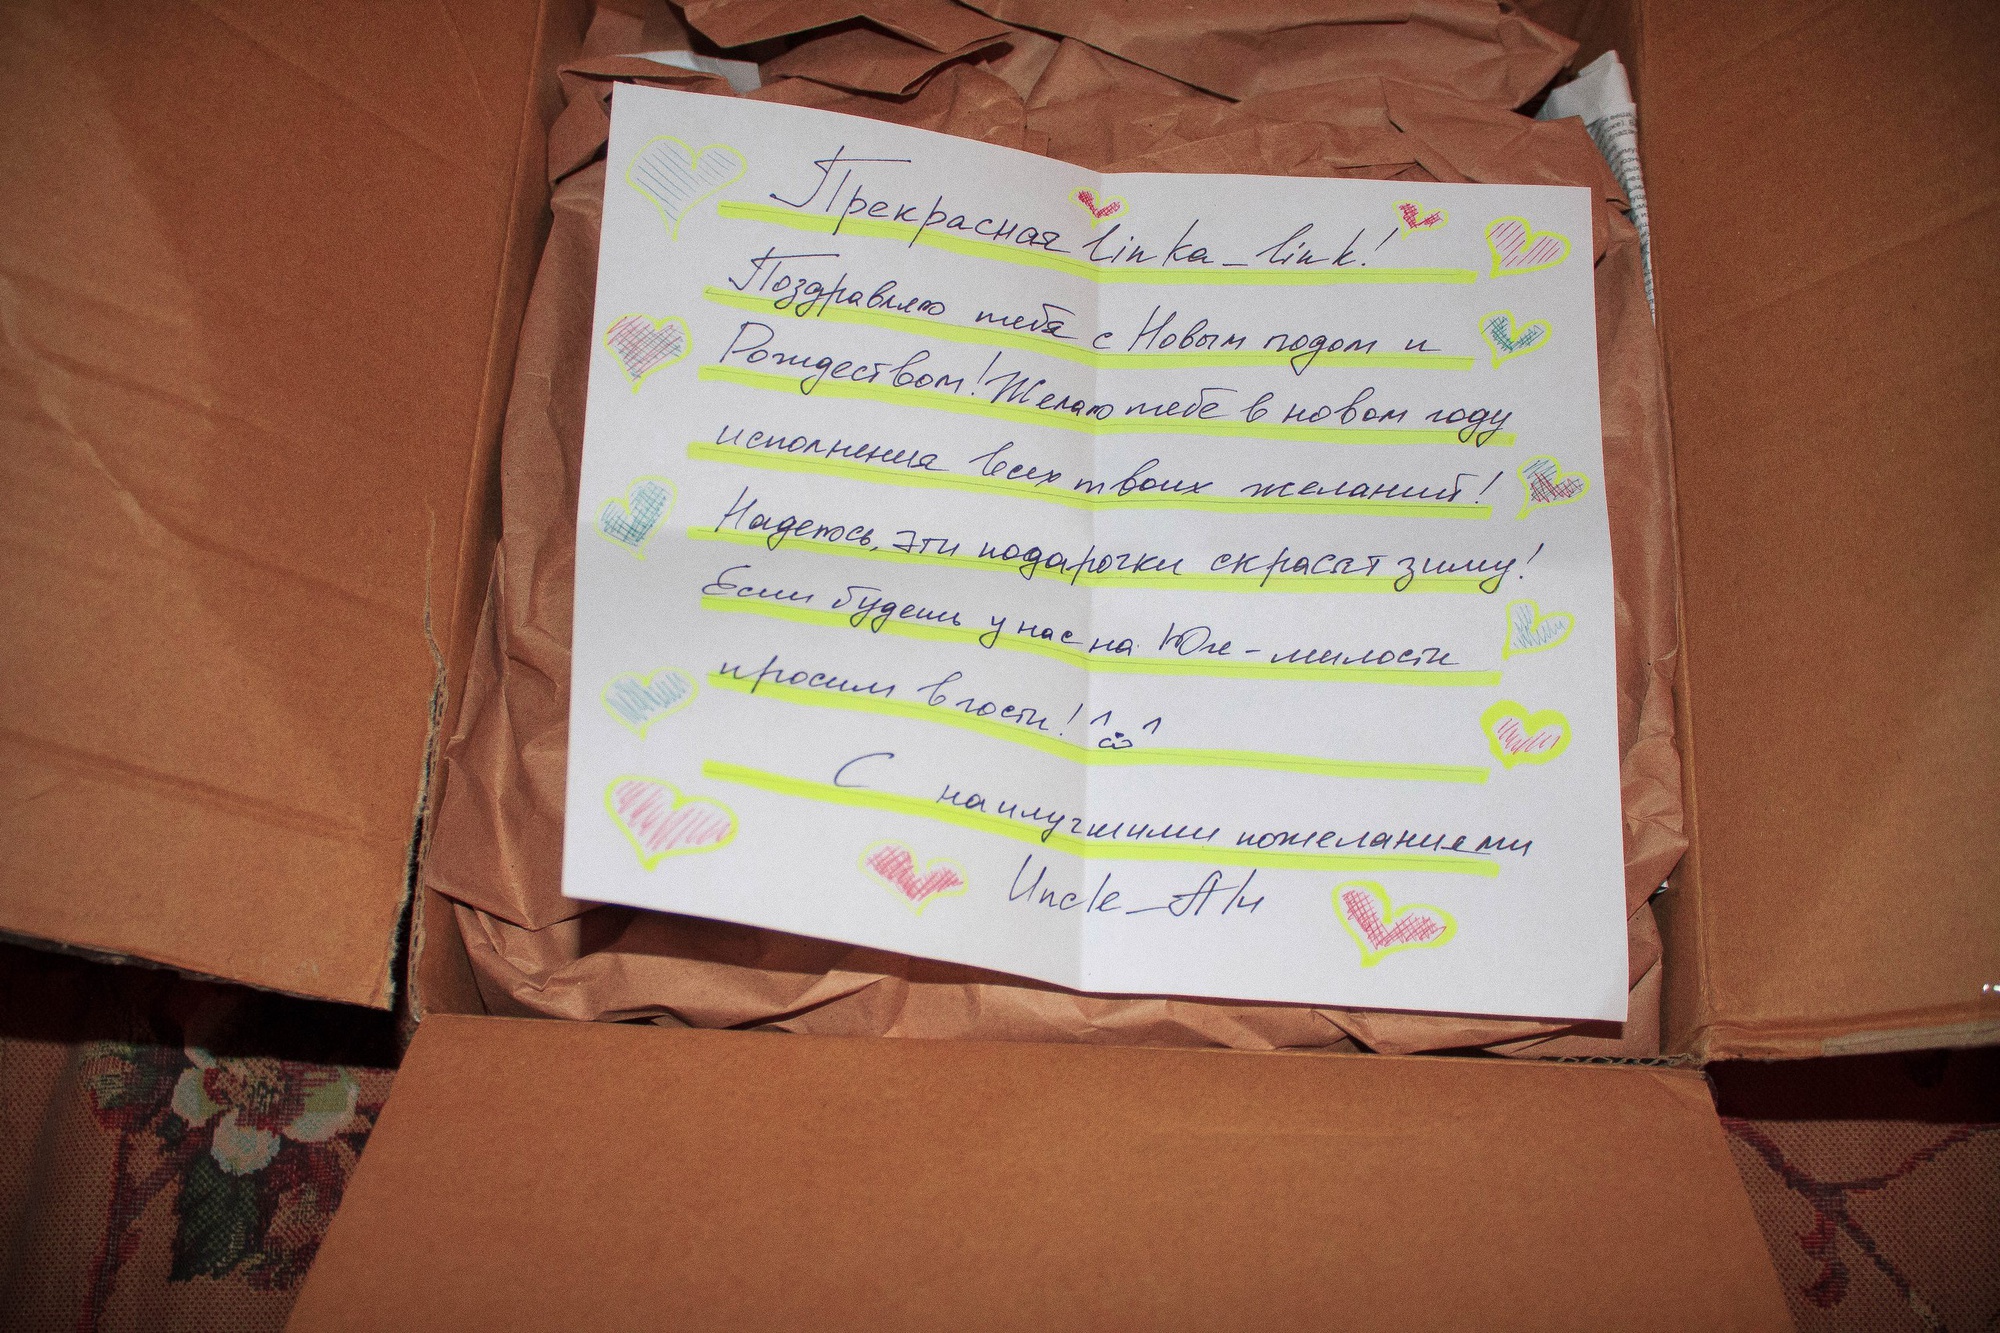 Прекрасная linka_link!
Поздравляю тебя с Новым годом и
Рождеством! Желаю тебе в новом году
исполнения всех твоих желаний!
Надеюсь, эти подарочки скрасят зиму!
Если будешь у нас на Юге - милости
просим в гости! ^ ^
С наилучшими пожеланиями